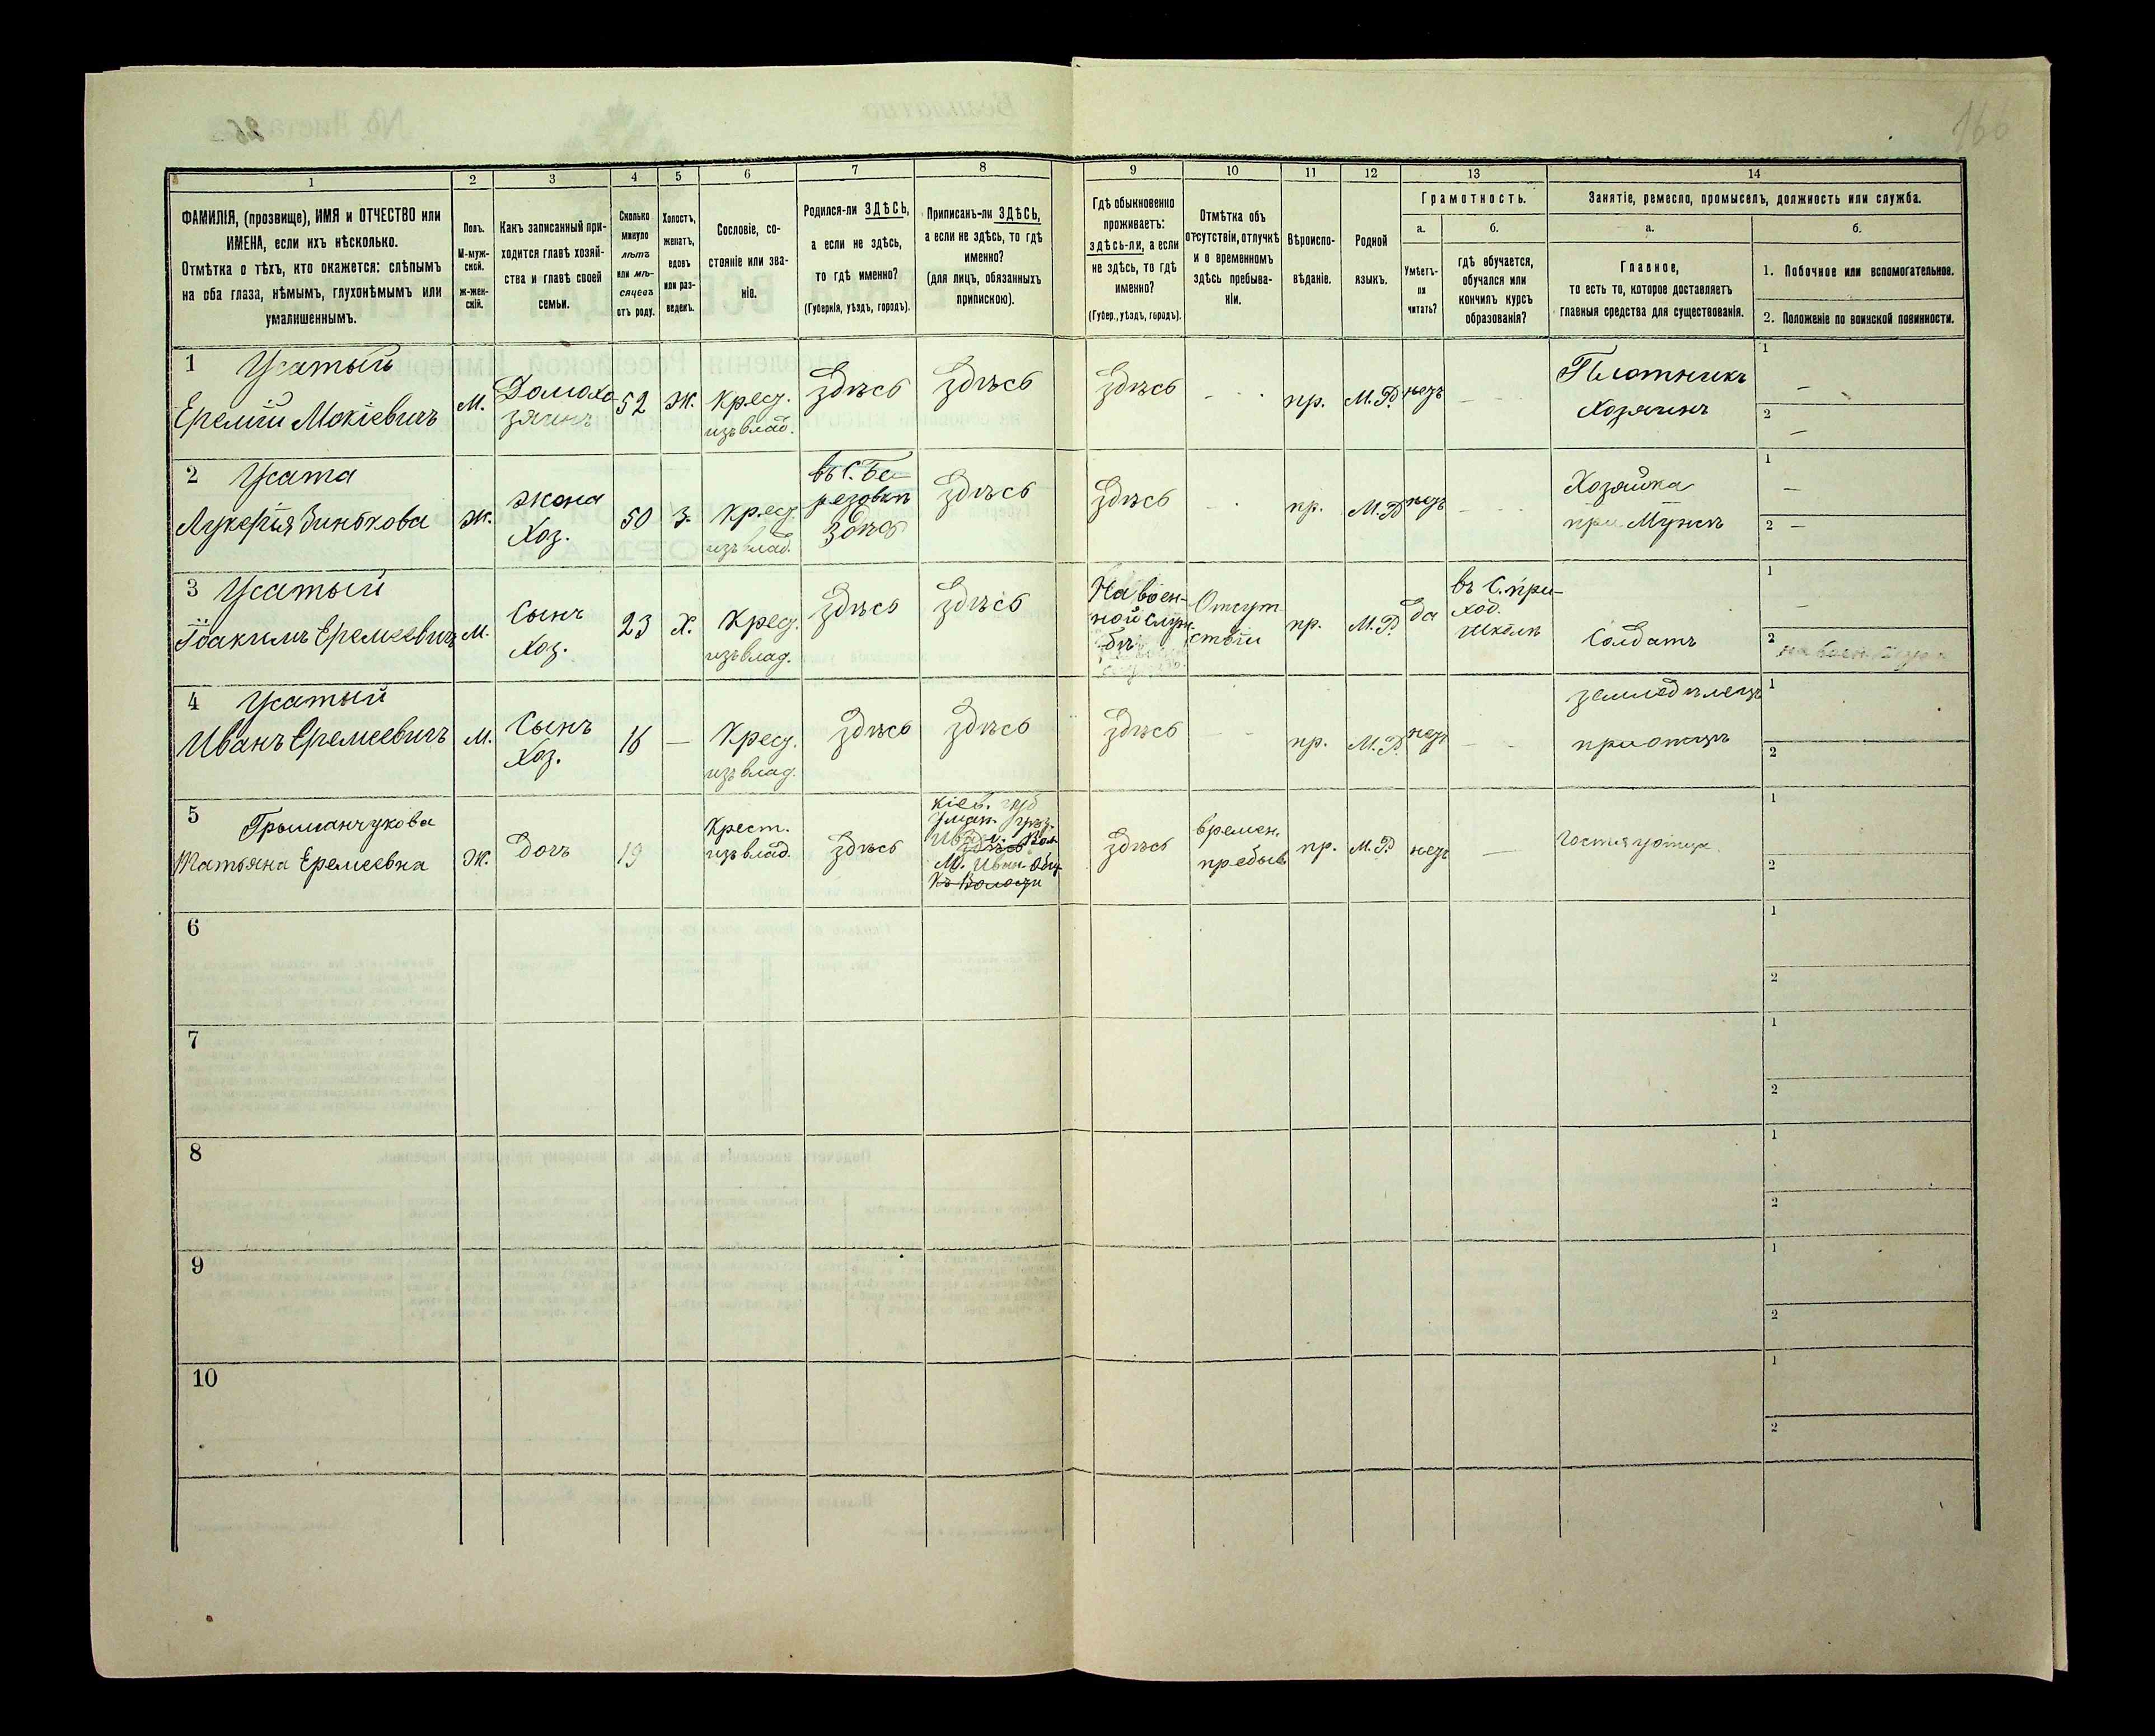 166
1
2
3
4
5
6
7
8
9
10
11
12
13
14
ФАМИЛІЯ, (прозвище), ИМЯ и ОТЧЕСТВО или
ИМЕНА, если ихъ нѣсколько.
Отмѣтка о тѣхъ, кто окажется: слѣпымъ
на оба глаза, нѣмымъ, глухонѣмымъ или
умалишеннымъ.
Полъ.
М-муж-
ской.
ж-жен-
скій.
Какъ записанный при-
ходится главѣ хозяй-
ства и главѣ своей
семьи.
Сколько
минуло
лѣтъ
или мѣ-
сяцевъ
отъ роду.
Холостъ,
женатъ,
вдовъ
или раз-
веденъ.
Сословіе, со-
стояніе или зва-
ніе.
Родился-ли ЗДѢСЬ,
а если не здѣсь,
то гдѣ именно?
(Губернія, уѣздъ, городъ).
Приписанъ-ли ЗДѢСЬ,
а если не здѣсь, то гдѣ
именно?
(для лицъ, обязанныхъ
припискою).
Гдѣ обыкновенно
проживаетъ:
здѣсь-ли, а если
не здѣсь, то гдѣ
именно?
(Губер., уѣздъ, городъ).
Отмѣтка объ
отсутствіи, отлучкѣ
и о временномъ
здѣсь пребыва-
ніи.
Вѣроиспо-
вѣданіе.
Родной
языкъ.
Грамотность.
а.
Умѣетъ-
ли
читать?
б.
гдѣ обучается,
обучался или
кончилъ курсъ
образованія?
Занятіе, ремесло, промыселъ, должность или служба.
а.
Главное,
то есть то, которое доставляетъ
главныя средства для существованія.
б.
1. Побочное или вспомогательное.
2. Положеніе по воинской повинности.
1 Усатый
Еремій Мокіевичъ
м.
Домохо
зяинъ
52
Ж.
Крес.
изъ влад.
Здѣсь
Здѣсь
Здѣсь
пр.
М.Р.
нетъ
Плотникъ
Хозяинъ
1
—
2
—
2 Усата
Лукерія Зинькова
ж.
Жена
Хоз.
50
З.
Крес.
изъ влад.
въ С. Бе-
резовкѣ
Здѣсь
Здѣсь
Здѣсь
пр.
М.Р.
нетъ
Хозяйка
при Мужѣ
1
—
2 —
3 Усатый
Іоакимъ Еремеевичъ
м.
Сынъ
Хоз.
23
Х.
Крес.
изъ влад.
Здѣсь
Здѣсь
На воен-
ной служ
бѣ
Отсут
ствіи
пр.
М.Р.
да
въ С. при-
ход.
школѣ
Солдатъ
1
—
2
4 Усатый
Иванъ Еремеевичъ
м.
Сынъ
Хоз.
16
—
Крес.
изъ влад.
Здѣсь
Здѣсь
Здѣсь
пр.
М.Р.
нетъ
земледѣлецъ
при отцѣ
1
2
5
Татьяна Еремеевна
ж.
Дочь
19
Крест.
изъ влад.
Здѣсь
Кіев. губ
Уман. уѣз.
Здѣсь
времен.
пребыв
пр.
М.Р.
нетъ
—
Гостя у отца
1
2
6
1
2
7
1
2
8
1
2
9
1
2
10
1
2